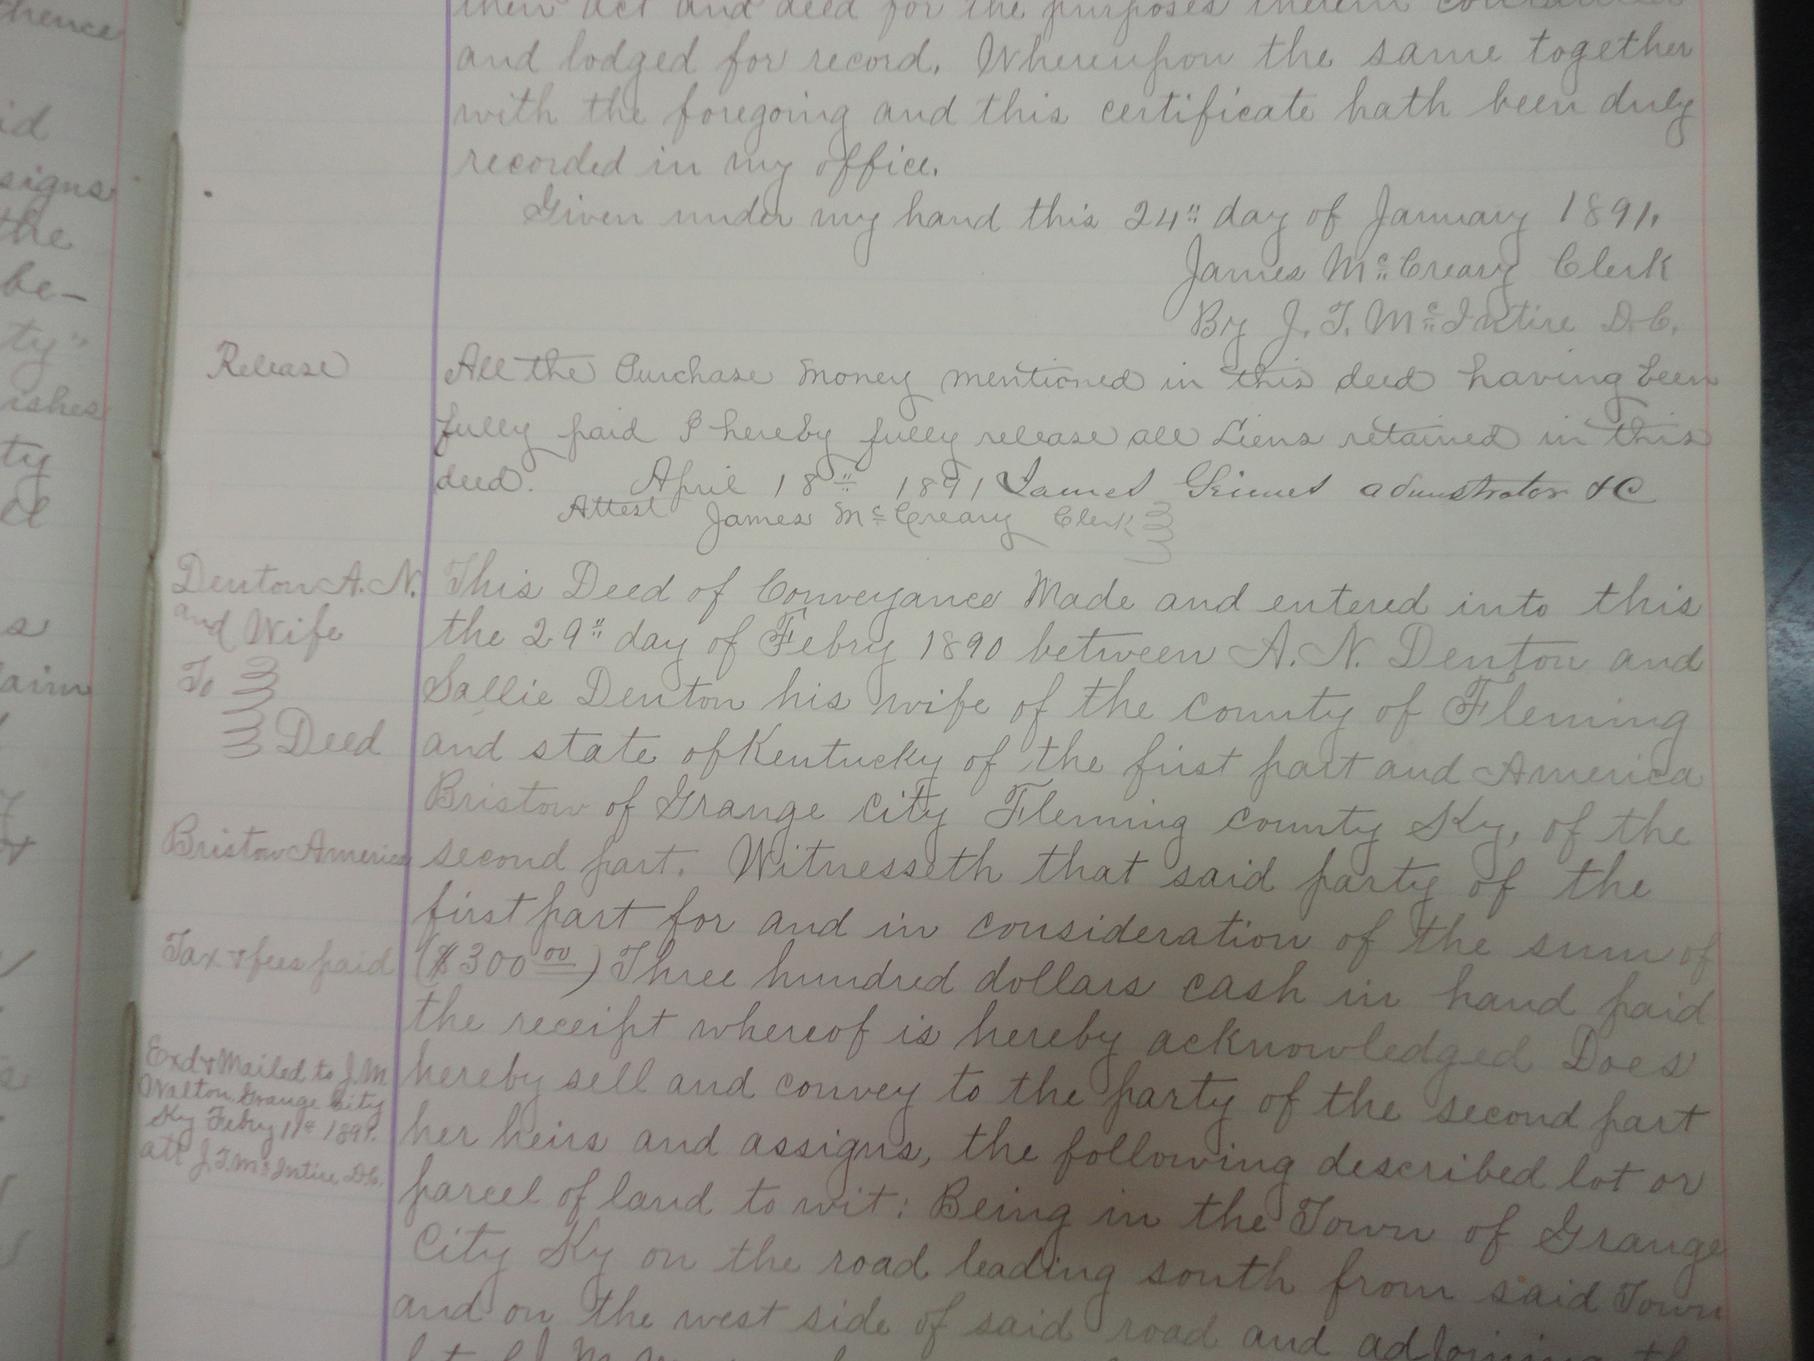 thence
id
signs
the
be-
ty"
ishes
ty
s
aim
their act and deed for the purposes therein contained
and lodged for record. Whereupon the same together
with the foregoing and this certificate hath been duly
recorded in my office.
Given under my hand this 24" day of January 1891.
James McCreary Clerk
By J. T. McIntire D.C.
Release
All the Purchase money mentioned in this deed having been
fully paid I hereby fully release all Liens retained in this
deed. April 18th 1891 James Grimes admnstrator &C
Attest James McCreary Clerk
Denton A. N.
and Wife
To
Deed
Bristow America
Tax & fees paid
Exd & Mailed to J. M
Walton Grange City
Ky Febry 11th 1891.
att J. T. McIntire D.C.
This Deed of Conveyance Made and entered into this
the 29" day of Febry 1890 between A. N. Denton and
Sallie Denton his wife of the county of Fleming
and state of Kentucky of the first part and America
Bristow of Grange City Fleming county Ky, of the
second part. Witnesseth that said party of the
first part for and in consideration of the sum of
($300 00) Three hundred dollars cash in hand paid
the receipt whereof is hereby acknowledged Does
hereby sell and convey to the party of the second part
her heirs and assigns, the following described lot or
parcel of land to wit: Being in the Town of Grange
City Ky on the road leading south from said Town
and on the west side of said road and adjoining